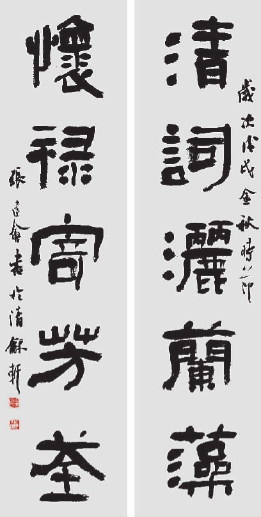 清詞灑蘭藻
歲次戊戌金秋時節
懷禄寄芳荃
張 書於清穌軒